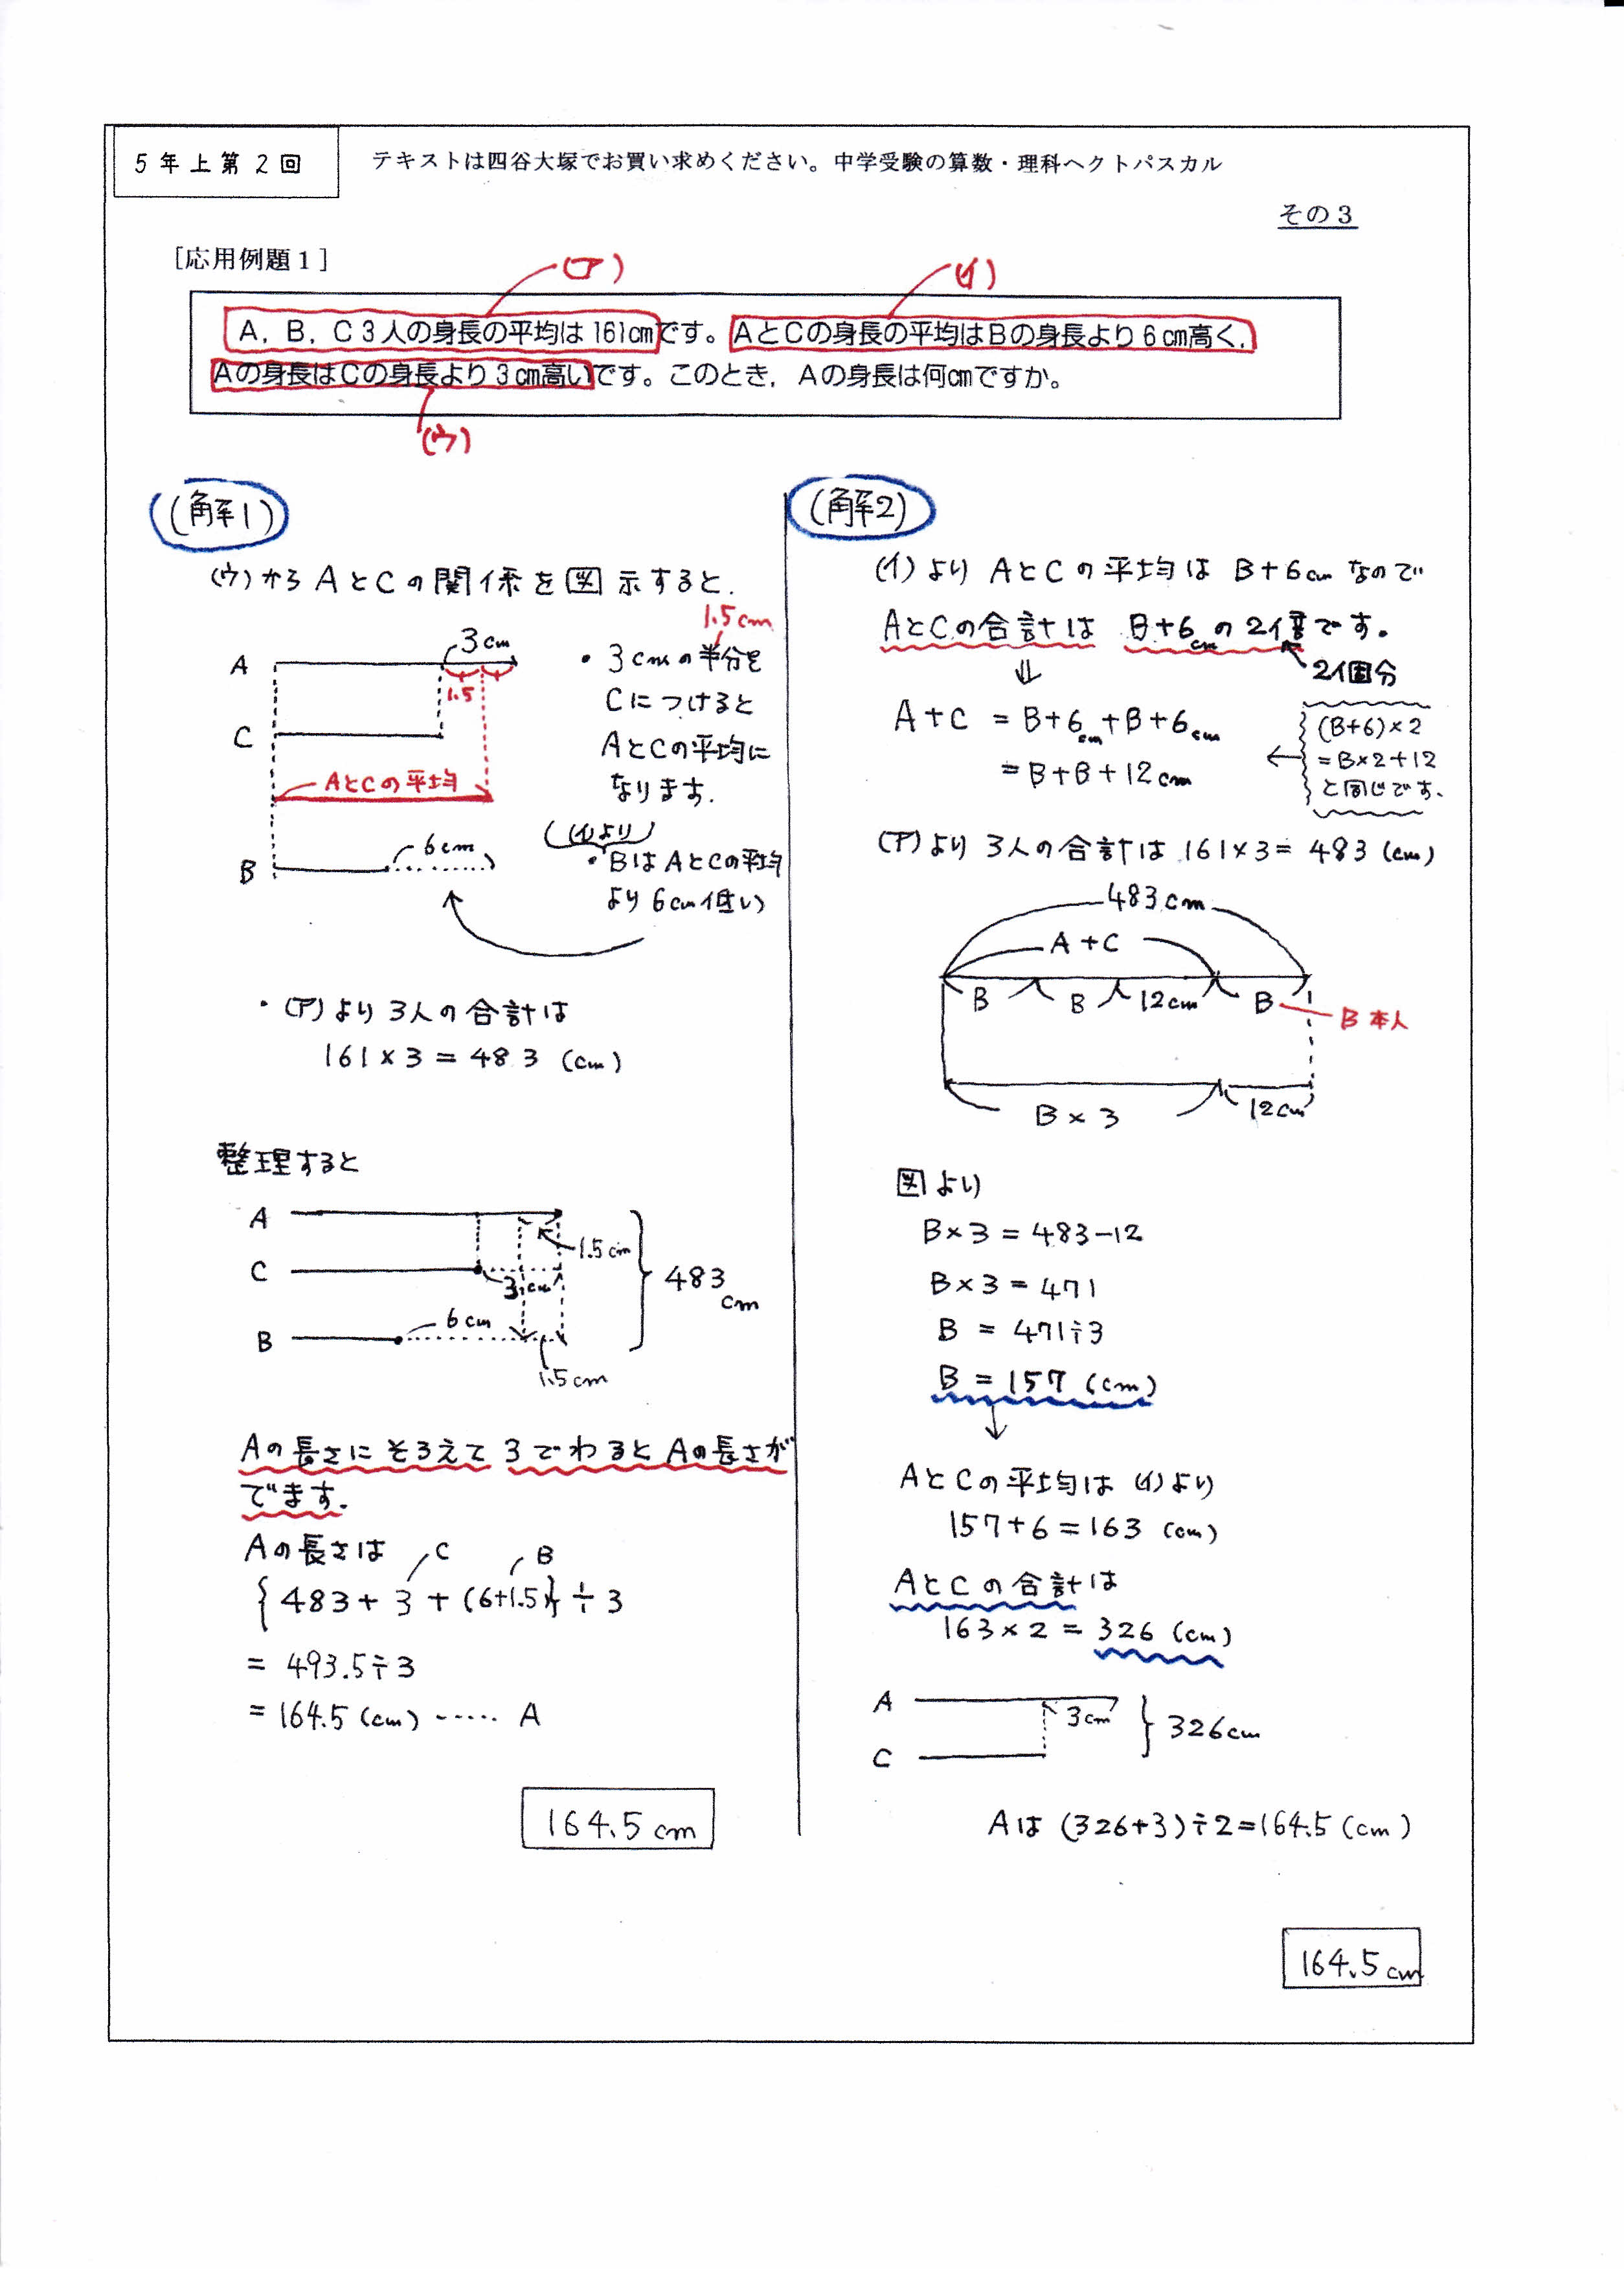 5年上第2回
テキストは四谷大塚でお買い求めください。中学受験の算数・理科ヘクトパスカル
その3
[応用例題1]
(ア)
(イ)
A，B，C3人の身長の平均は161cmです。AとCの身長の平均はBの身長より6cm高く，
Aの身長はCの身長より3cm高いです。このとき，Aの身長は何cmですか。
(ウ)
(解1)
(ウ)からAとCの関係を図示すると.
A
3cm
1.5
C
AとCの平均
B
6cm
1.5cm
・3cmの半分を
Cにつけると
AとCの平均に
なります.
(イ)より
・BはAとCの平均
より6cm低い
・(ア)より3人の合計は
161×3=483 (cm)
整理すると
A
1.5cm
C
3cm
B
6cm
1.5cm
483cm
Aの長さにそろえて3でわるとAの長さが
でます.
Aの長さは
C
B
{483+3+(6+1.5)}÷3
= 493.5÷3
= 164.5 (cm) ..... A
164.5cm
(解2)
(イ)より AとCの平均は B+6cm なので
AとCの合計は B+6cmの2倍です。
2個分
⇓
A+C = B+6cm+B+6cm
= B+B+12cm
←
(B+6)×2
=B×2+12
と同じです.
(ア)より 3人の合計は 161×3= 483 (cm)
483cm
A+C
B
B
12cm
B
B本人
B×3
12cm
図より
B×3=483-12
B×3=471
B = 471÷3
B = 157 (cm)
↓
AとCの平均は (イ)より
157+6=163 (cm)
AとCの合計は
163×2=326 (cm)
A
3cm
C
326cm
Aは(326+3)÷2=164.5(cm)
164.5cm